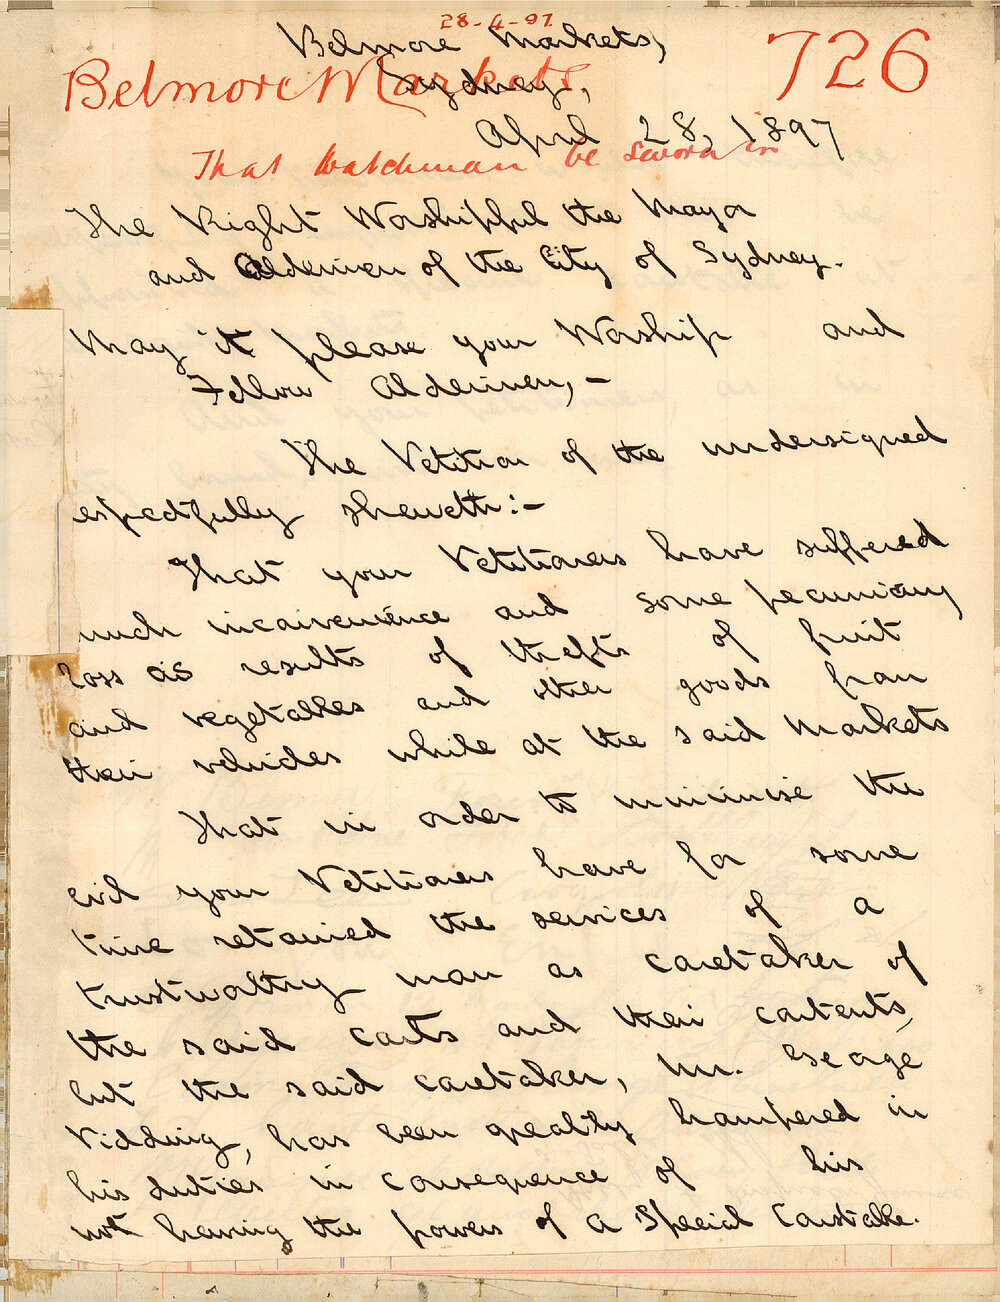 28-4-97
Belmore Markets,
726
Belmore Markets
Sydney,
April 28, 1897
That Watchman be Sworn in
The Right Worshipful the Mayor
and Aldermen of the City of Sydney.
May it please your Worship and
Fellow Aldermen, –
The Petition of the undersigned
espectfully sheweth: –
That your Petitioners have suffered
much inconvenience and some pecuniary
loss as results of thefts of fruit
and vegetables and other goods from
their vehicles while at the said Markets
That in order to minimise the
evil your Petitioners have for some
time retained the services of a
trustworthy man as caretaker of
the said carts and their contents,
but the said caretaker, Mr. George
Ridding, has been greatly hampered in
his duties in consequence of his
not having the powers of a Special Constable.